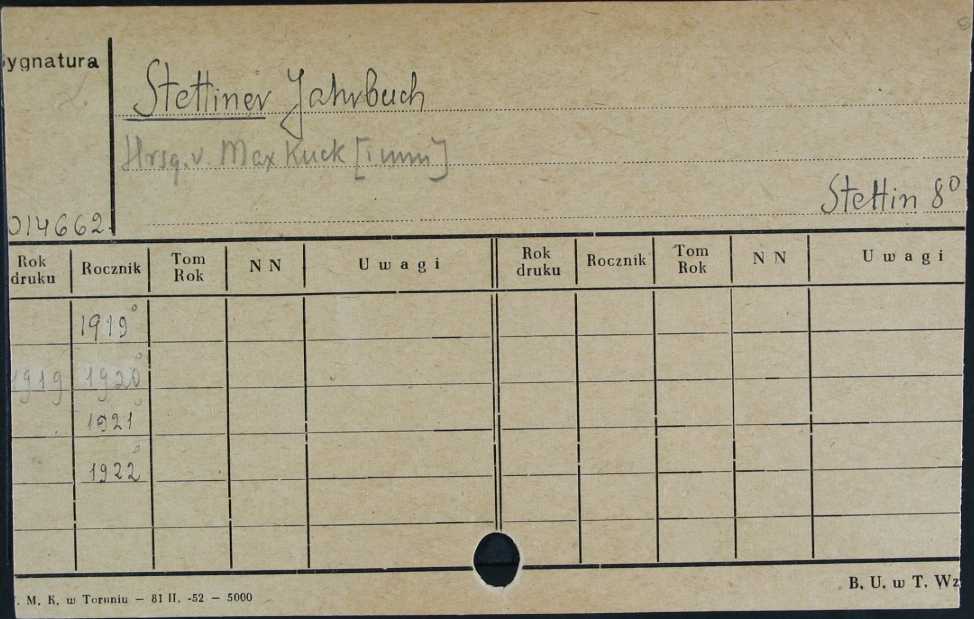 ygnatura
Stettiner Jahrbuch
Hrsg. v. Max Kuck [i inni]
Stettin 8°
014662
Rok druku Rocznik Tom Rok N N Uwagi Rok druku Rocznik Tom Rok N N Uwagi
1919°
1919 1920°
1921°
1922°
B. U. w T. Wz
. M. K. w Toruniu — 81 II. -52 — 5000